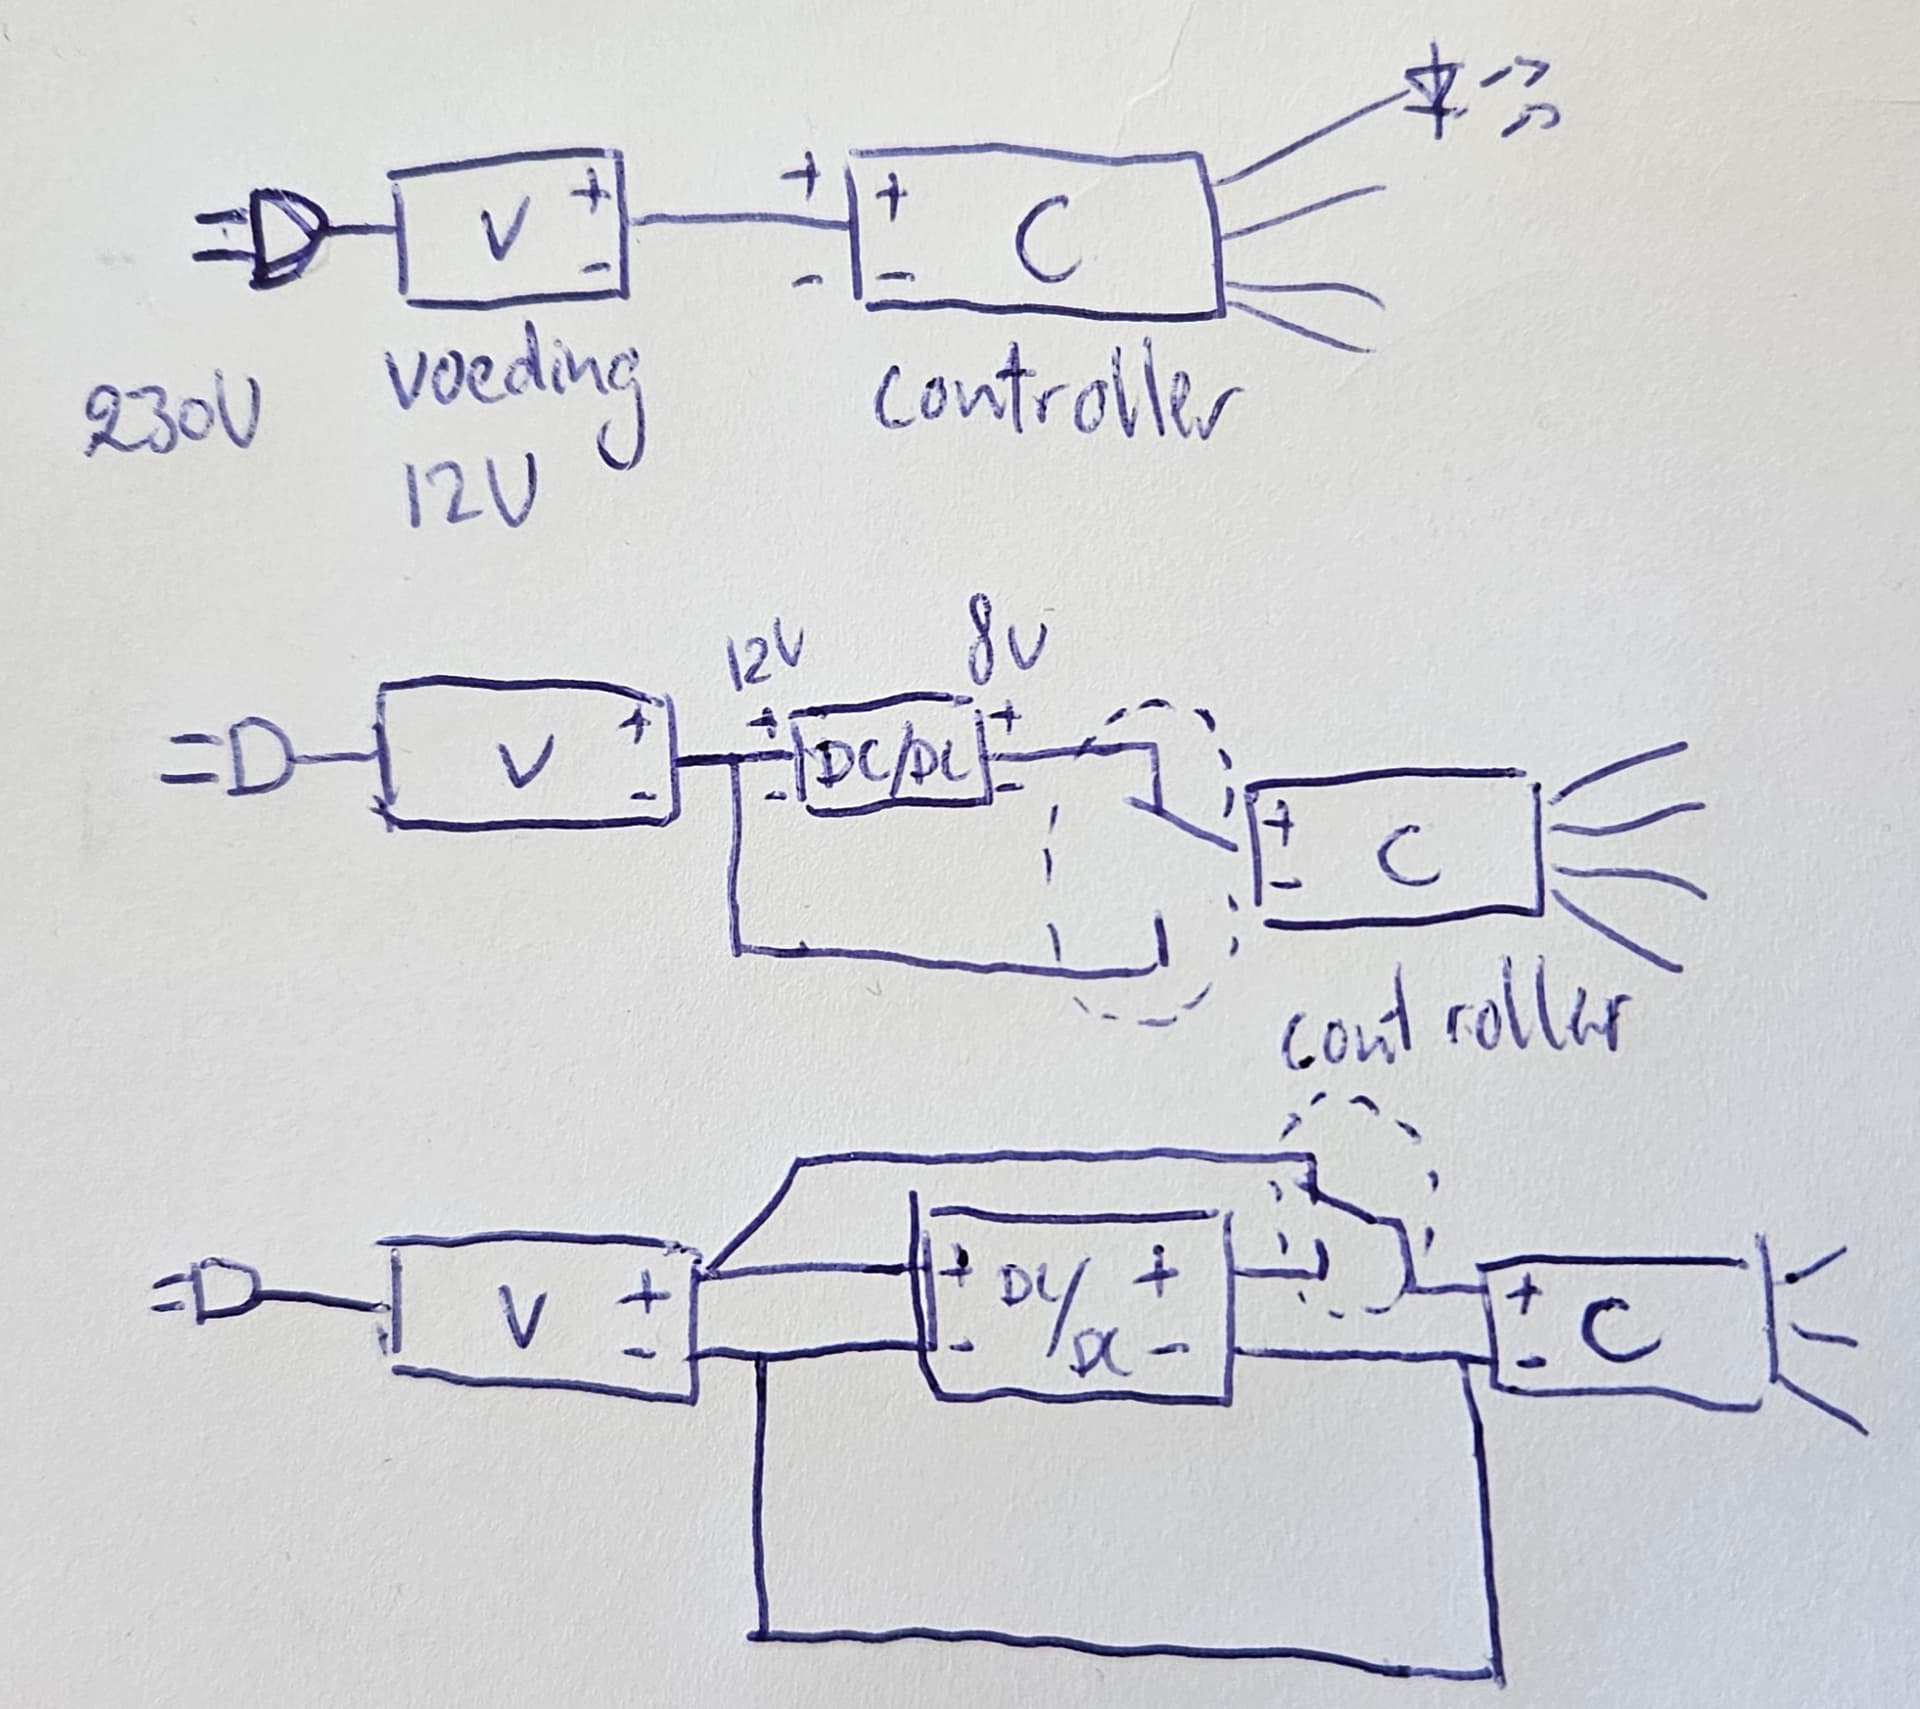 + + +
V C
- - -
230V voeding controller
12V
12V 8V
+ + +
V DC/DC
- - -
+
C
-
controller
+ + + +
V DC/ C
- - DC - -